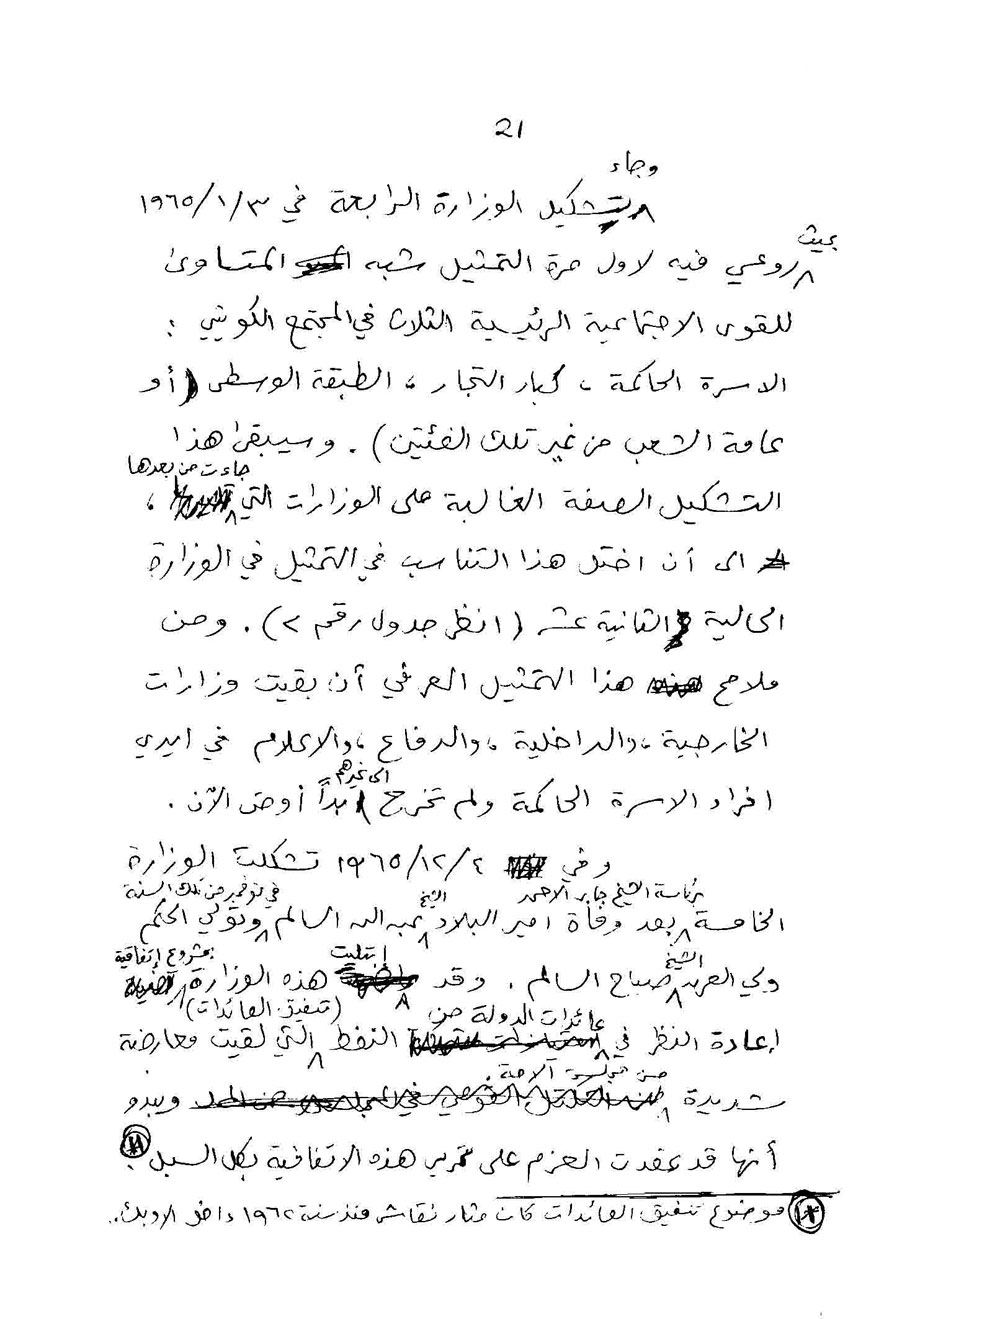 21
وجاء
تشكيل الوزارة الرابعة في ١٩٦٥/١/٣
بحيث
روعي فيه لاول مرة التمثيل شبه المتساوى
للقوى الاجتماعية الرئيسية الثلاث في المجتمع الكويتي :
الاسرة الحاكمة ، كبار التجار ، الطبقة الوسطى (أو
عامة الشعب من غير تلك الفئتين) . وسيبقى هذا
جاءت من بعدها
التشكيل الصفة الغالبة على الوزارات التي ،
الى أن اختل هذا التناسب في التمثيل في الوزارة
الحالية الثانية عشر (انظر جدول رقم ٢) . ومن
ملامح هذا التمثيل العرفي أن بقيت وزارات
الخارجية ، والداخلية ، والدفاع ، والاعلام في ايدي
الى غيرهم
افراد الاسرة الحاكمة ولم تخرج ابداً الآن .
وفي ١٩٦٥/١٢/٤ تشكلت الوزارة
برئاسة الشيخ جابر الاحمد الشيخ في نوفمبر من تلك السنة
الخامسة بعد وفاة امير البلاد عبدالله السالم وتولي الحكم
الشيخ إبتليت بمشروع إتفاقية
ولي العهد صباح السالم . وقد هذه الوزارة
عائدات الدولة من (تنفيق العائدات)
إعادة النظر في النفط التي لقيت معارضة
من مجلس الامة .
شديدة ويبدو
أنها قد عقدت العزم على تمرير هذه الاتفاقية بكل السبل .
موضوع تنفيق العائدات كان مثار نقاش منذ سنة ١٩٦٢ داخل الاوبك ..